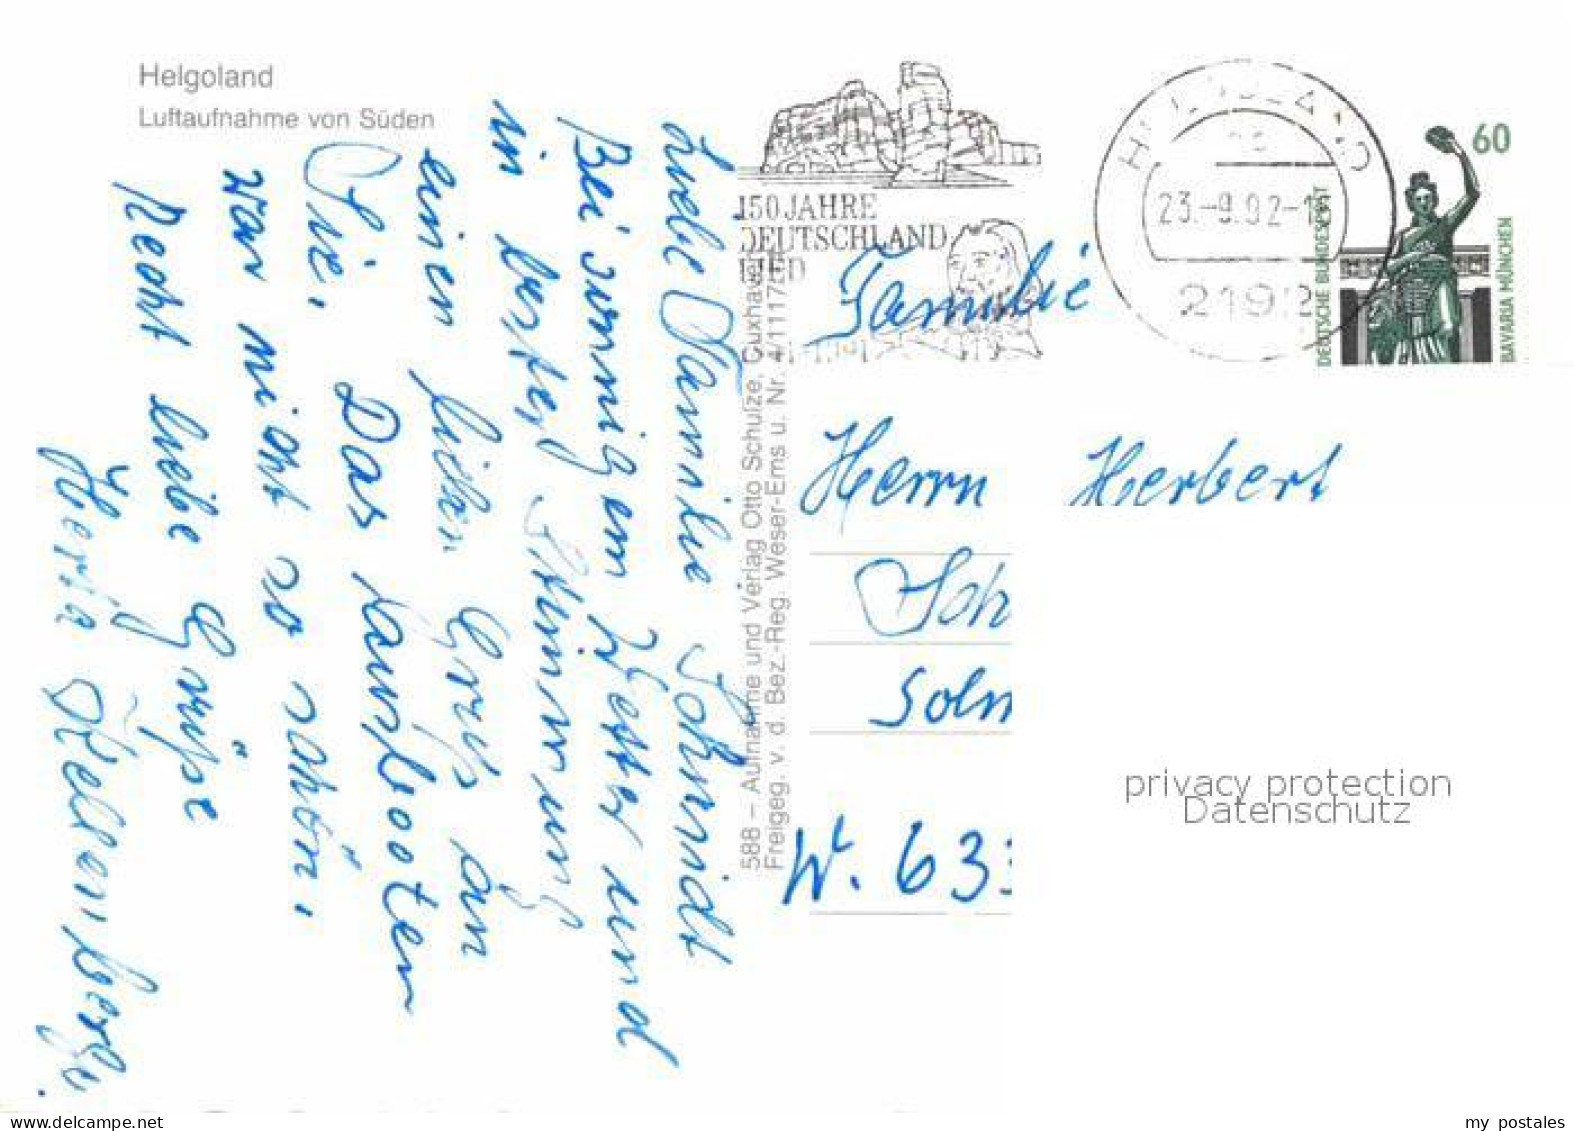 Helgoland
Luftaufnahme von Süden
Liebe Familie Schmidt
Bei sonnigem Wetter und
in bester Stimmung
einen lieben Gruß an
Sie. Das Ausbooten
war nicht so schön.
Recht liebe Grüße
Herta
588 – Aufnahme und Verlag Otto Schulze, Cuxhaven
Freigeg. v. d. Bez.-Reg. Weser-Ems u. Nr. 4/1117
150 JAHRE
DEUTSCHLAND
LIED
HELGOLAND
23.-9.92-
2192
60
DEUTSCHE BUNDESPOST
BAVARIA MÜNCHEN
Familie
Herrn Herbert
Sch
Soln
W. 633
privacy protection
Datenschutz
www.delcampe.net
my_postales